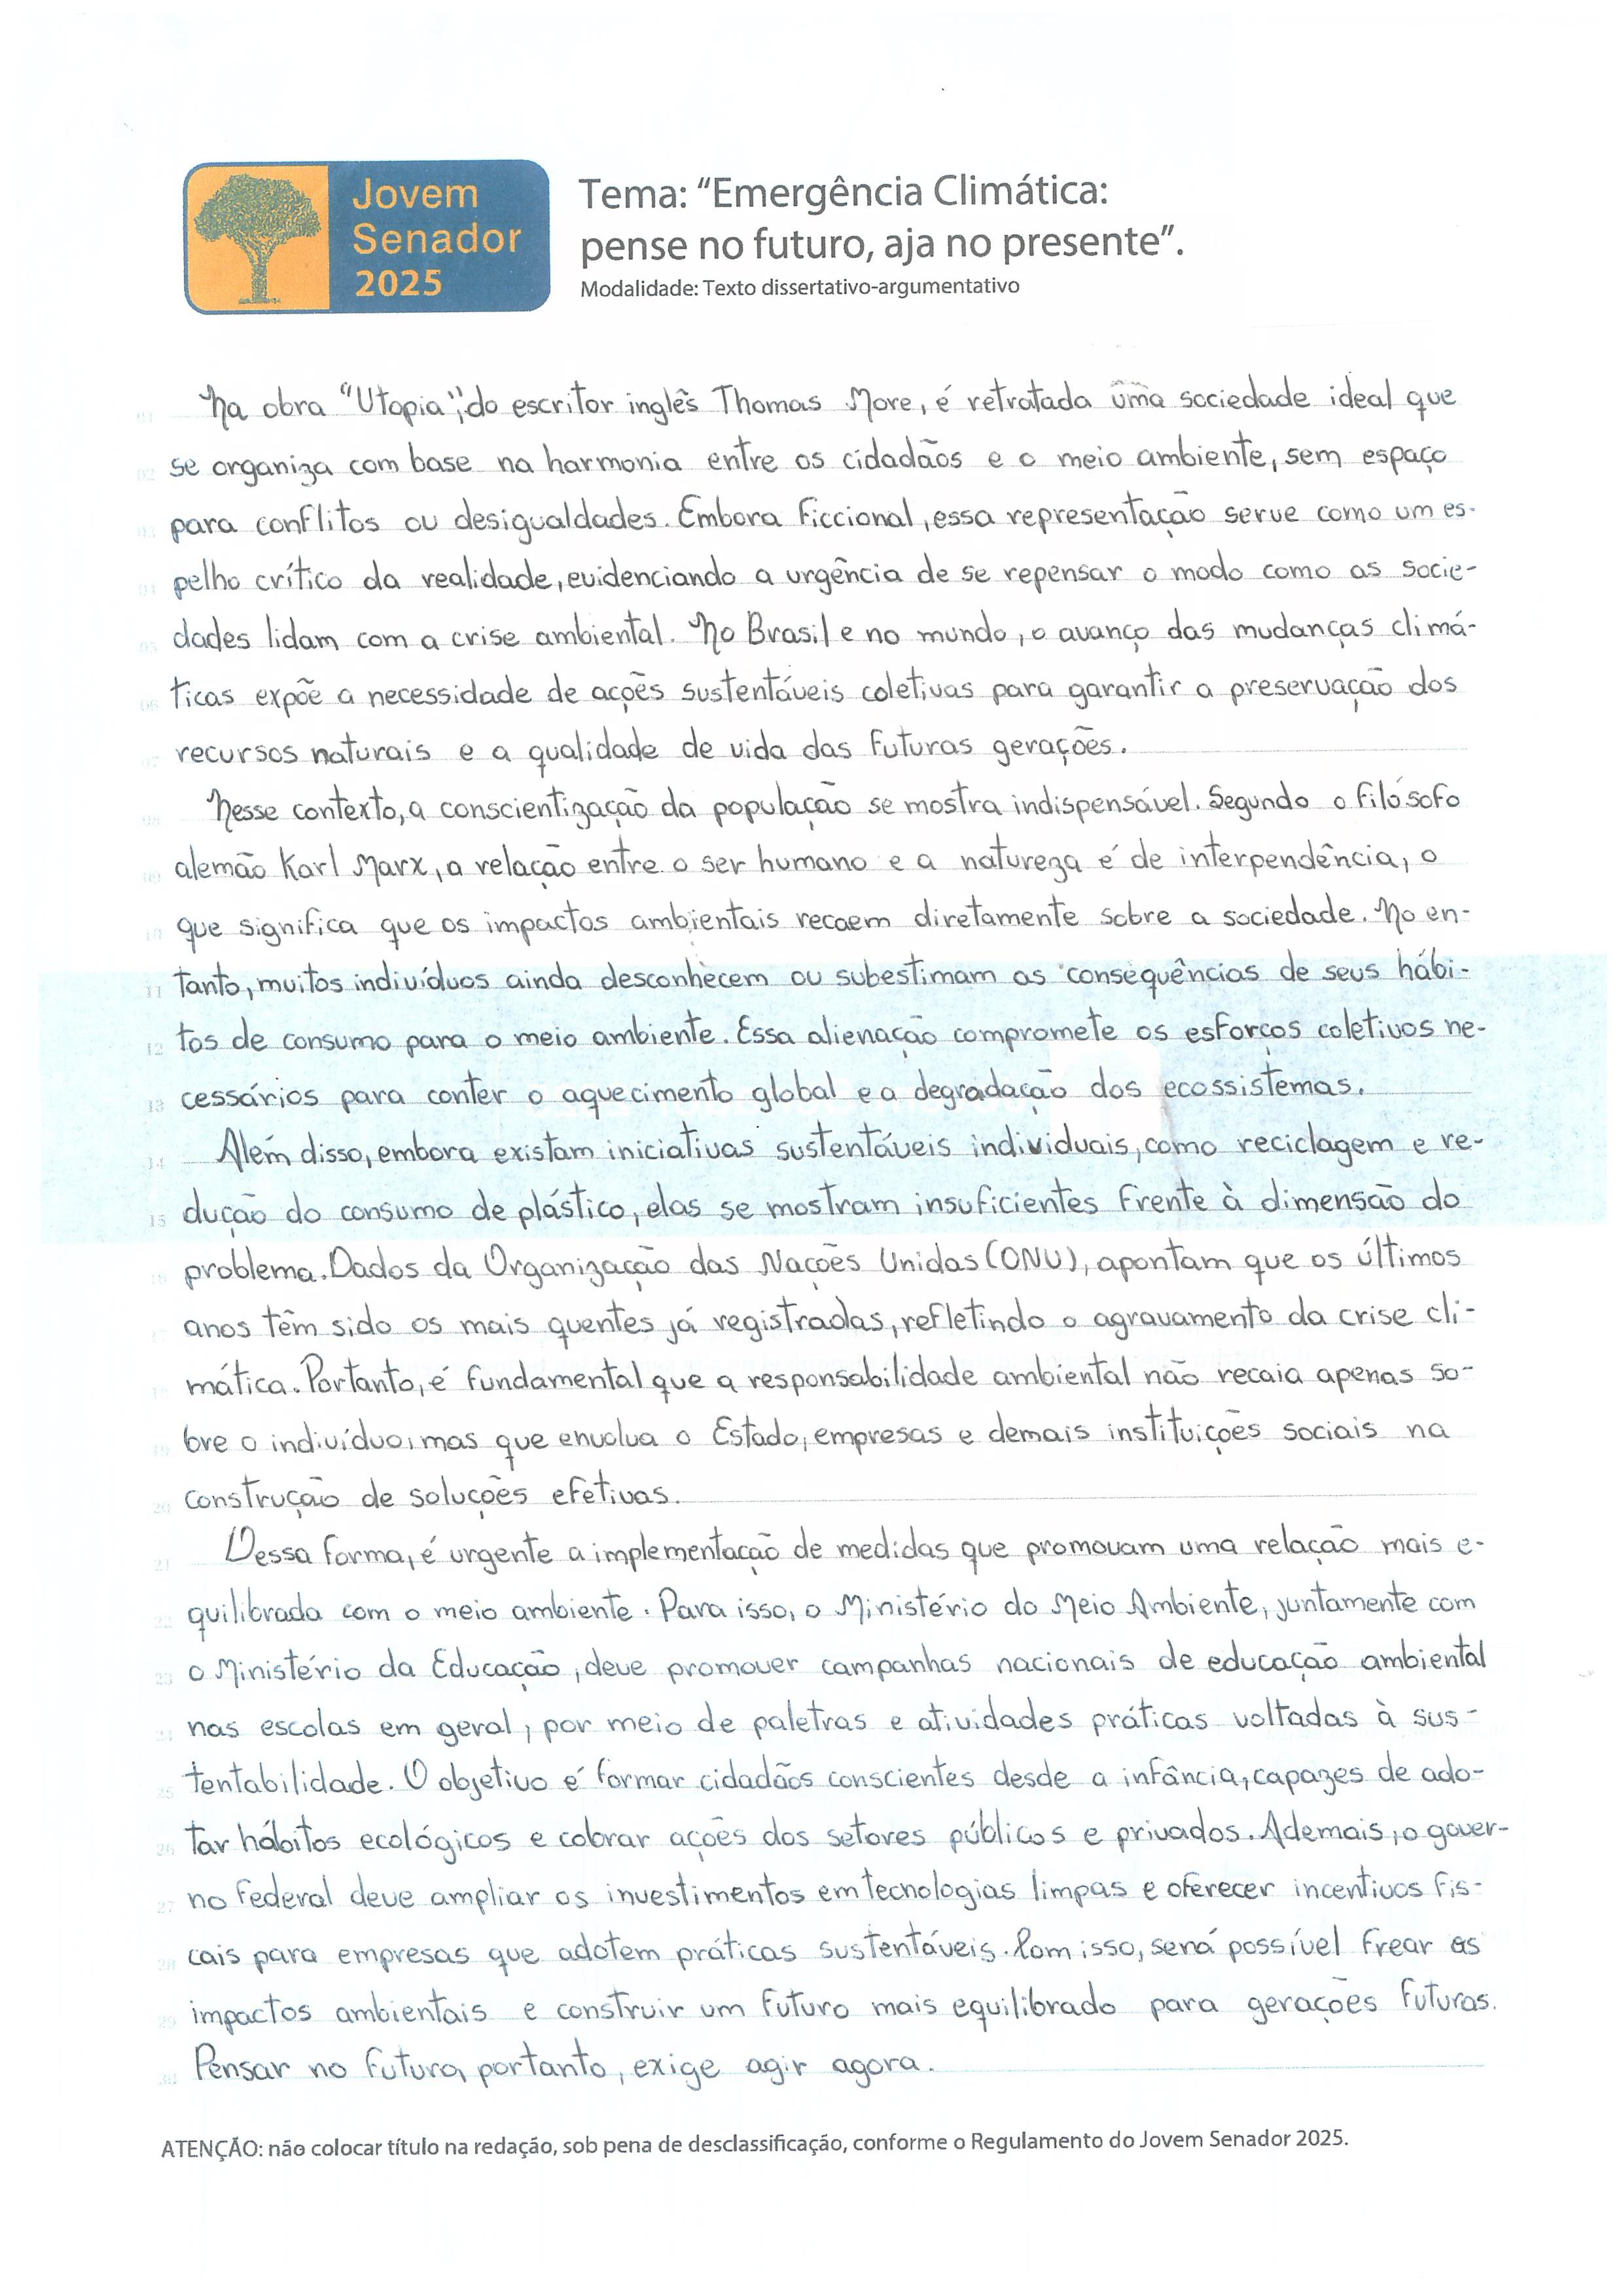 Jovem
Senador
2025
Tema: “Emergência Climática:
pense no futuro, aja no presente”.
Modalidade: Texto dissertativo-argumentativo
01 Na obra “Utopia”, do escritor inglês Thomas More, é retratada uma sociedade ideal que
02 se organiza com base na harmonia entre os cidadãos e o meio ambiente, sem espaço
03 para conflitos ou desigualdades. Embora ficcional, essa representação serve como um es-
04 pelho crítico da realidade, evidenciando a urgência de se repensar o modo como as socie-
05 dades lidam com a crise ambiental. No Brasil e no mundo, o avanço das mudanças climá-
06 ticas expõe a necessidade de ações sustentáveis coletivas para garantir a preservação dos
07 recursos naturais e a qualidade de vida das futuras gerações.
08 Nesse contexto, a conscientização da população se mostra indispensável. Segundo o filósofo
09 alemão Karl Marx, a relação entre o ser humano e a natureza é de interpendência, o
10 que significa que os impactos ambientais recaem diretamente sobre a sociedade. No en-
11 tanto, muitos indivíduos ainda desconhecem ou subestimam as consequências de seus hábi-
12 tos de consumo para o meio ambiente. Essa alienação compromete os esforços coletivos ne-
13 cessários para conter o aquecimento global e a degradação dos ecossistemas.
14 Além disso, embora existam iniciativas sustentáveis individuais, como reciclagem e re-
15 dução do consumo de plástico, elas se mostram insuficientes frente à dimensão do
16 problema. Dados da Organização das Nações Unidas (ONU), apontam que os últimos
17 anos têm sido os mais quentes já registradas, refletindo o agravamento da crise cli-
18 mática. Portanto, é fundamental que a responsabilidade ambiental não recaia apenas so-
19 bre o indivíduo, mas que envolva o Estado, empresas e demais instituições sociais na
20 construção de soluções efetivas.
21 Dessa forma, é urgente a implementação de medidas que promovam uma relação mais e-
22 quilibrada com o meio ambiente. Para isso, o Ministério do Meio Ambiente, juntamente com
23 o Ministério da Educação, deve promover campanhas nacionais de educação ambiental
24 nas escolas em geral, por meio de paletras e atividades práticas voltadas à sus-
25 tentabilidade. O objetivo é formar cidadãos conscientes desde a infância, capazes de ado-
26 tar hábitos ecológicos e cobrar ações dos setores públicos e privados. Ademais, o gover-
27 no Federal deve ampliar os investimentos em tecnologias limpas e oferecer incentivos fis-
28 cais para empresas que adotem práticas sustentáveis. Com isso, será possível frear os
29 impactos ambientais e construir um futuro mais equilibrado para gerações futuras.
30 Pensar no futuro, portanto, exige agir agora.
ATENÇÃO: não colocar título na redação, sob pena de desclassificação, conforme o Regulamento do Jovem Senador 2025.